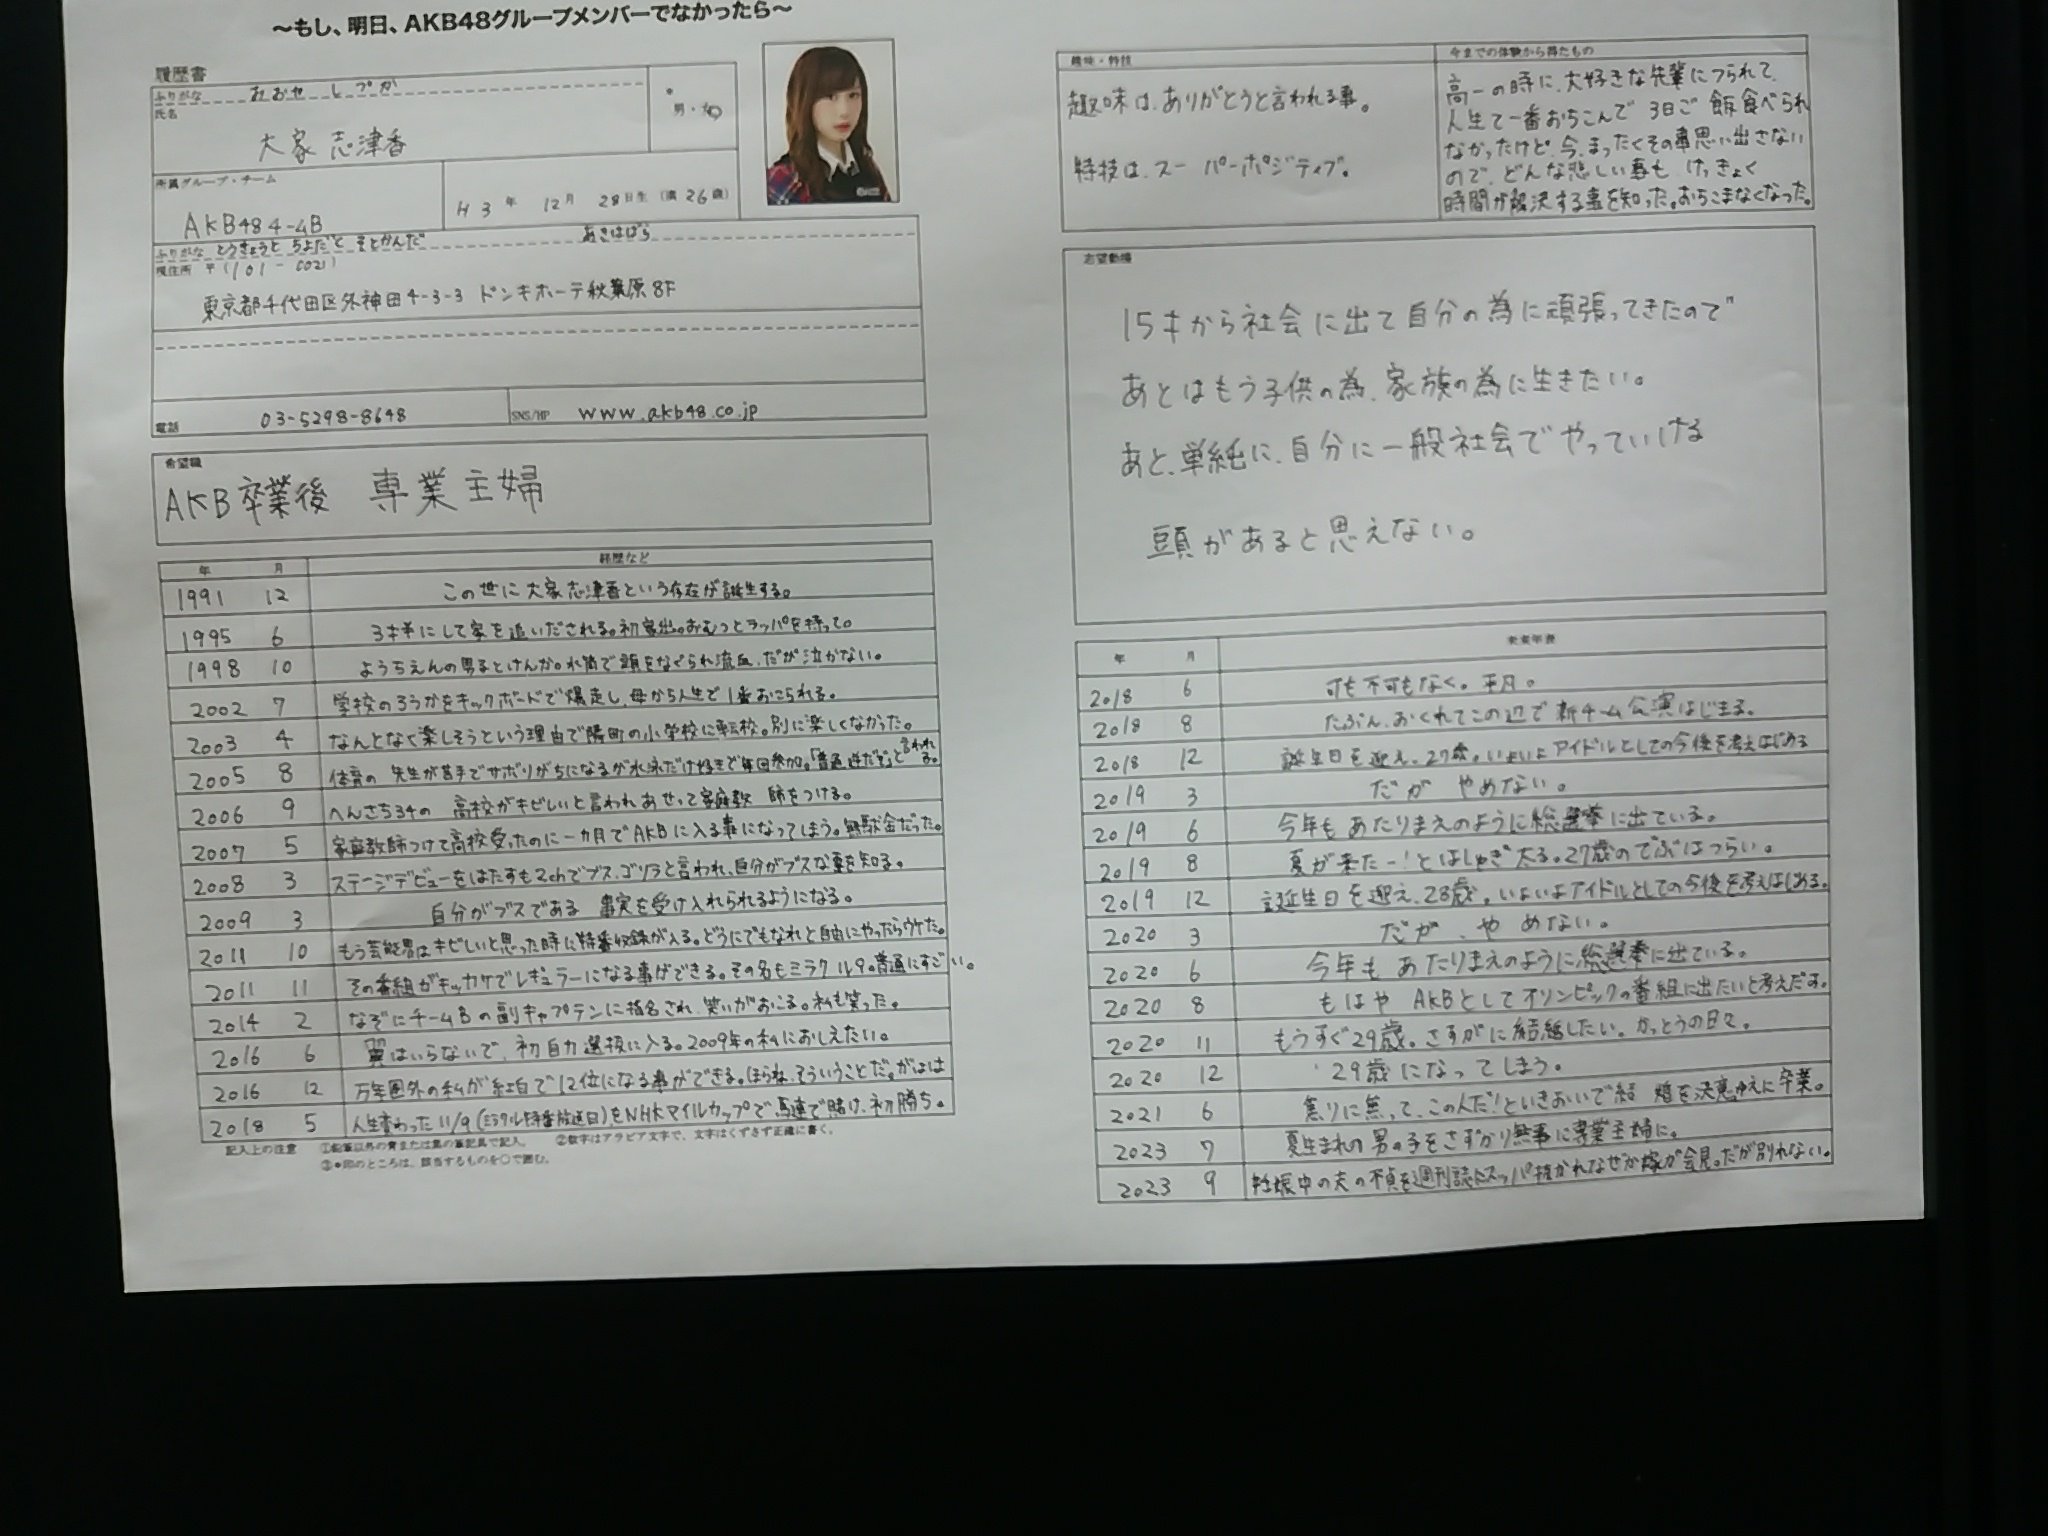 ～もし、明日、AKB48グループメンバーでなかったら～
履歴書
ふりがな おおや しづか
氏名
大家 志津香
男・女
所属グループ・チーム
AKB48 チームB
H3年 12月 28日生（満26歳）
ふりがな とうきょうと ちよだく そとかんだ あきはばら
現住所 〒(101-0021)
東京都千代田区外神田4-3-3 ドンキホーテ秋葉原8F
電話 03-5298-8648
SNS/HP www.akb48.co.jp
希望職
AKB卒業後 専業主婦
年 月 経歴など
1991 12 この世に大家志津香という存在が誕生する。
1995 6 3才半にして家を追いだされる。初家出。おむつとラッパを持って。
1998 10 ようちえんの男子とけんか。水筒で頭をなぐられ流血、だが泣かない。
2002 7 学校のろうかをキックボードで爆走し、母から人生で1番おこられる。
2003 4 なんとなく楽しそうという理由で隣町の小学校に転校。別に楽しくなかった。
2005 8 体育の先生が苦手でサボりがちになるが水泳だけ好きで毎回参加。「普通逆だぞ」と言われる。
2006 9 へんさち34の高校がキビしいと言われあせって家庭教師をつける。
2007 5 家庭教師つけて高校受ったのに一カ月でAKBに入る事になってしまう。無駄金だった。
2008 3 ステージデビューをはたすも2chでブス、ゴリラと言われ、自分がブスな事を知る。
2009 3 自分がブスである事実を受け入れられるようになる。
2011 10 もう芸能界はキビしいと思った時に特番収録が入る。どうにでもなれと自由にやったらウケた。
2011 11 その番組がキッカケでレギュラーになる事ができる。その名もミラクル9。普通にすごい。
2014 2 なぞにチームBの副キャプテンに指名され、笑いがおこる。私も笑った。
2016 6 翼はいらないで、初自力選抜に入る。2009年の私におしえたい。
2016 12 万年圏外の私が紅白で12位になる事ができる。ほらね、そういうことだ。がはは
2018 5 人生変わった11/9(ミラクル9特番放送日)をNHKマイルカップで馬連で賭け、初勝ち。
記入上の注意 ①鉛筆以外の青または黒の筆記具で記入。 ②数字はアラビア文字で、文字はくずさず正確に書く。
③※印のところは、該当するものを○で囲む。
趣味・特技
趣味は、ありがとうと言われる事。
特技は、スーパーポジティブ。
今までの体験から得たもの
高一の時に、大好きな先輩にフられて、
人生で一番おちこんで 3日ご飯食べられ
なかったけど、今、まったくその事思い出さない
ので、どんな悲しい事も けっきょく
時間が解決する事を知った。おちこまなくなった。
志望動機
15才から社会に出て自分の為に頑張ってきたので
あとはもう子供の為、家族の為に生きたい。
あと、単純に、自分に一般社会でやっていける
頭があると思えない。
年 月 未来年表
2018 6 可も不可もなく。平凡。
2018 8 たぶん、おくれてこの辺で新チーム公演はじまる。
2018 12 誕生日を迎え、27歳。いよいよアイドルとしての今後を考えはじめる
2019 3 だが やめない。
2019 6 今年も あたりまえのように総選挙に出ている。
2019 8 夏が来たー！とはしゃぎ太る。27歳のでぶはつらい。
2019 12 誕生日を迎え、28歳。いよいよアイドルとしての今後を考えはじめる。
2020 3 だが、やめない。
2020 6 今年も あたりまえのように総選挙に出ている。
2020 8 もはや AKBとしてオリンピックの番組に出たいと考えだす。
2020 11 もうすぐ29歳。さすがに結婚したい。かっとうの日々。
2020 12 29歳になってしまう。
2021 6 焦りに焦って、この人だ！といきおいで結婚を決意ゆえに卒業。
2023 7 夏生まれの男の子をさずかり無事に専業主婦に。
2023 9 妊娠中の夫の不貞を週刊誌にスッパ抜かれなぜか嫁が会見。だが別れない。